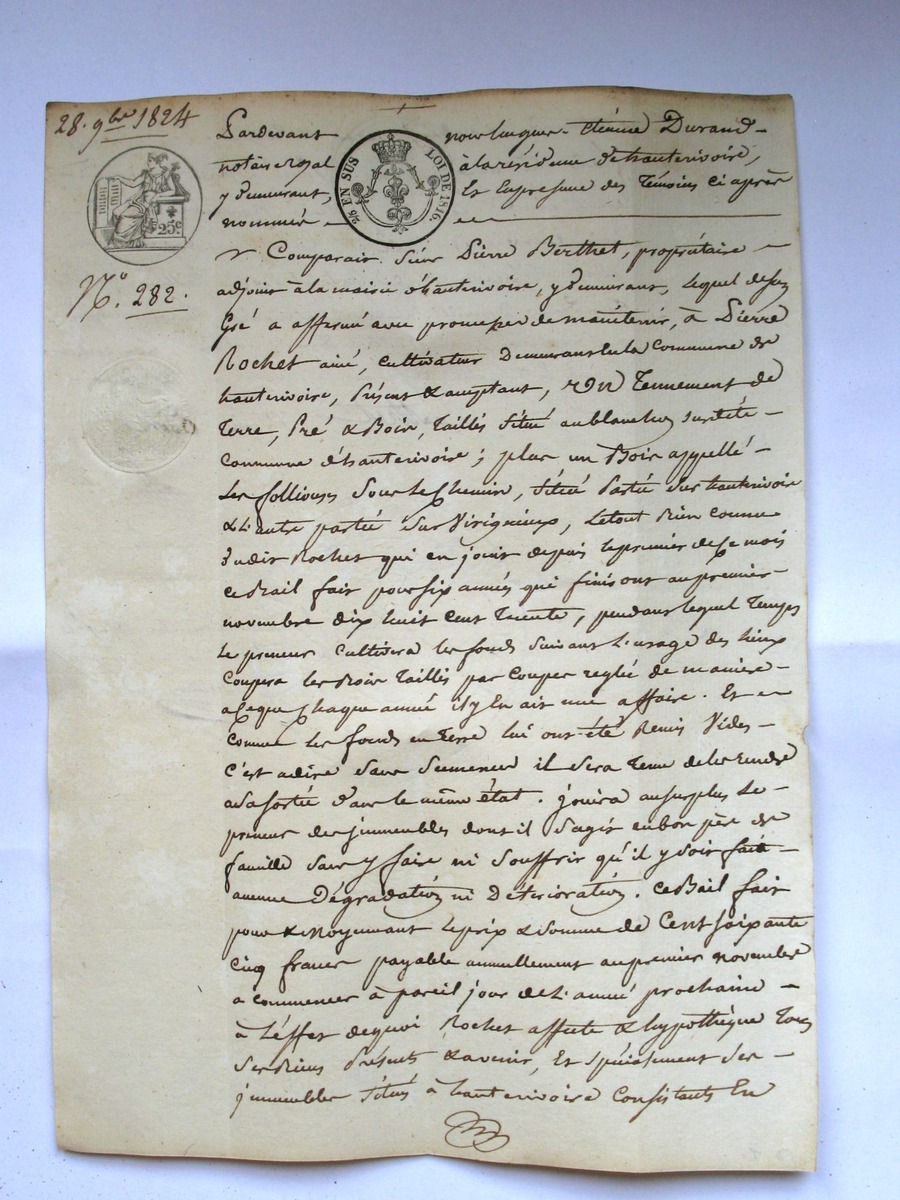 28. 9bre 1824
Pardevant nous Jacques-Etienne Durand-
notaire royal à la résidence d'hauterivoire,
y demeurant, Et En presence des Témoins Ci après
nommés
2/5 EN SUS LOI DE 1816.
25c
N° 282.
Comparait Sieur Pierre Berthet, propriétaire -
adjoint à la mairie d'hauterivoire, y demeurant, lequel de son
Gré a affermé avec promesse de maintenir, à Pierre
Rochet ainé, Cultivateur Demeurant En la Commune de
hauterivoire, Présent & acceptant, un Tennement de
Terre, Pré & Bois, Taillis Situé au blanchez susdite -
Commune d'hauterivoire; plus un Bois appellé -
Les follieuses Sous Le Chemin, Situé Partie Sur hauterivoire
& L'autre partie Sur Virigneux, Le tout Bien Connu
dudit Rochet qui en jouit depuis le premier de Ce mois
Ce Bail fait pour Six années qui finiront au premier -
novembre dix huit Cent Trente, pendant lequel Temps
Le preneur Cultivera les fonds Suivant L'usage des lieux
Coupera les Bois Taillis par Coupes reglé de maniere -
a Ceque Chaque année il y En ait une affaire. Et -
Comme Les fonds en Terre lui ont été Remis Vides -
C'est adire Sans Semences il Sera Tenu de les rendre
a Sa Sortie dans le même état. jouira au Surplus Le -
preneur des jmmeubles dont il S'agit en bon père de
famille Sans y faire ni Souffrir qu'il y Soit fait -
aucune Dégradation ni Détérioration. Ce Bail fait
pour & Moyennant Le prix & Somme de Cent Soixante
Cinq francs payable annuellement au premier novembre
a Commencer à pareil jour de L'année prochaine -
à L'éffet de quoi Rochet affecte & hypothèque Tous
Ses Biens Présents & avenir, Et Spécialement Ses -
jmmeubles Situés à hauterivoire Consistants En